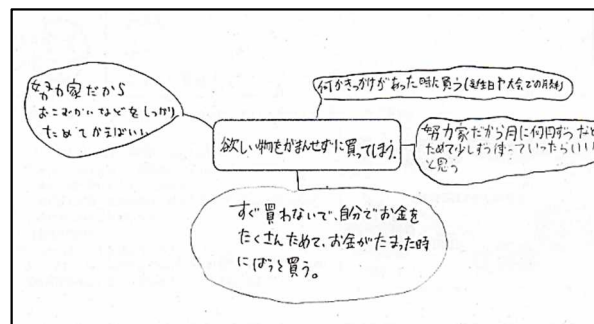 努力家だから
おこづかいなどをしっかり
ためてかえばいい
何かきっかけがあった時に買う(誕生日や大会での
欲しい物をがまんせずに買ってしまう。
努力家だから月に何円ずつなど
ためて少しずつ使っていったらいい
と思う
すぐ買わないで、自分でお金を
たくさんためて、お金がたまった時
にぱっと買う。